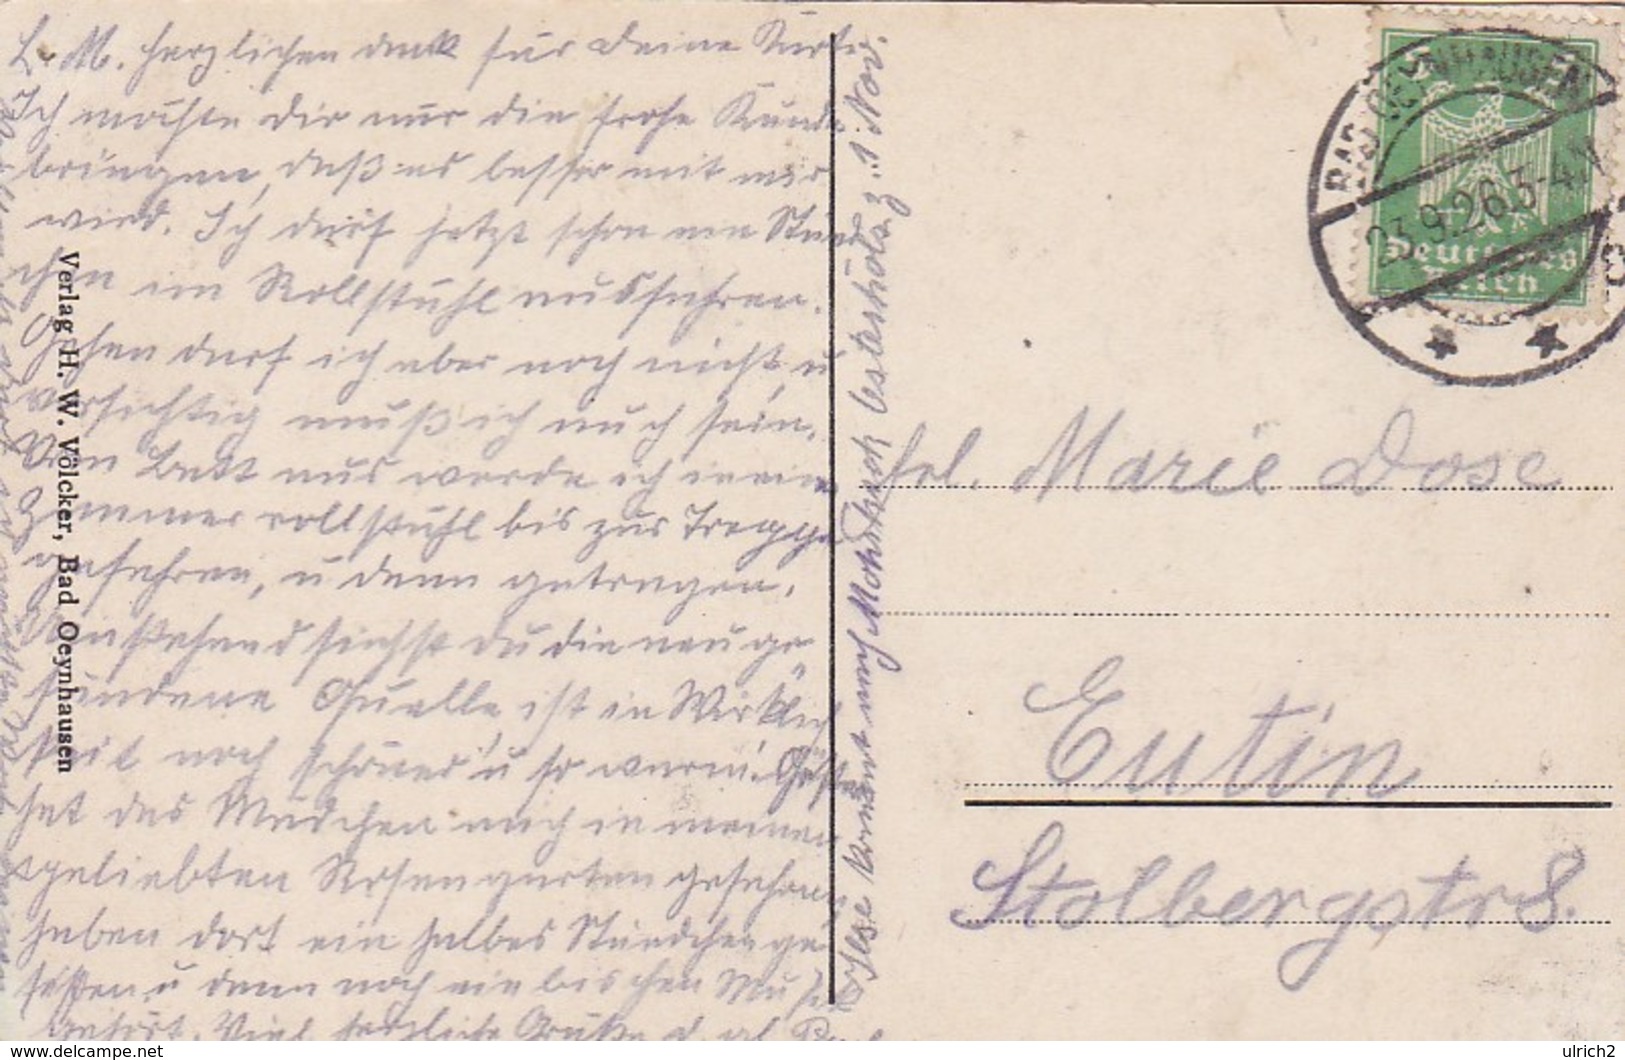 L. M. Herzlichen dank für Deine Karte.
Ich möchte Dir nur die frohe Kunde
bringen, daß es besser mit mir
wird. Ich darf jetzt schon ein Stünd
chen im Rollstuhl ausfahren.
Gehen darf ich aber noch nicht, u
vorsichtig muß ich auch sein.
Vom Bett aus werde ich in ein
Zimmerrollstuhl bis zur Treppe
gefahren, u dann getragen.
Umstehend siehst Du die neu ge-
fundene Quelle, ist in Wirklich
keit noch schöner u so warm. Gestern
hat das Mädchen mich in meinen
geliebten Rosengarten gefahren,
haben dort ein halbes Stündchen ge
sessen u dann noch ein bischen Musik
gehört. Viel herzliche Grüße d. al.
Ilse kommt nach Mohrkirch Osterholz z. 1 Nov.
Verlag H. W. Völcker, Bad Oeynhausen
BAD OEYNHAUSEN
23.9.26.3-4 N
Deutsches
Reich
Frl. Marie Dose
Eutin
Stolbergstr 8.
ulrich2
www.delcampe.net